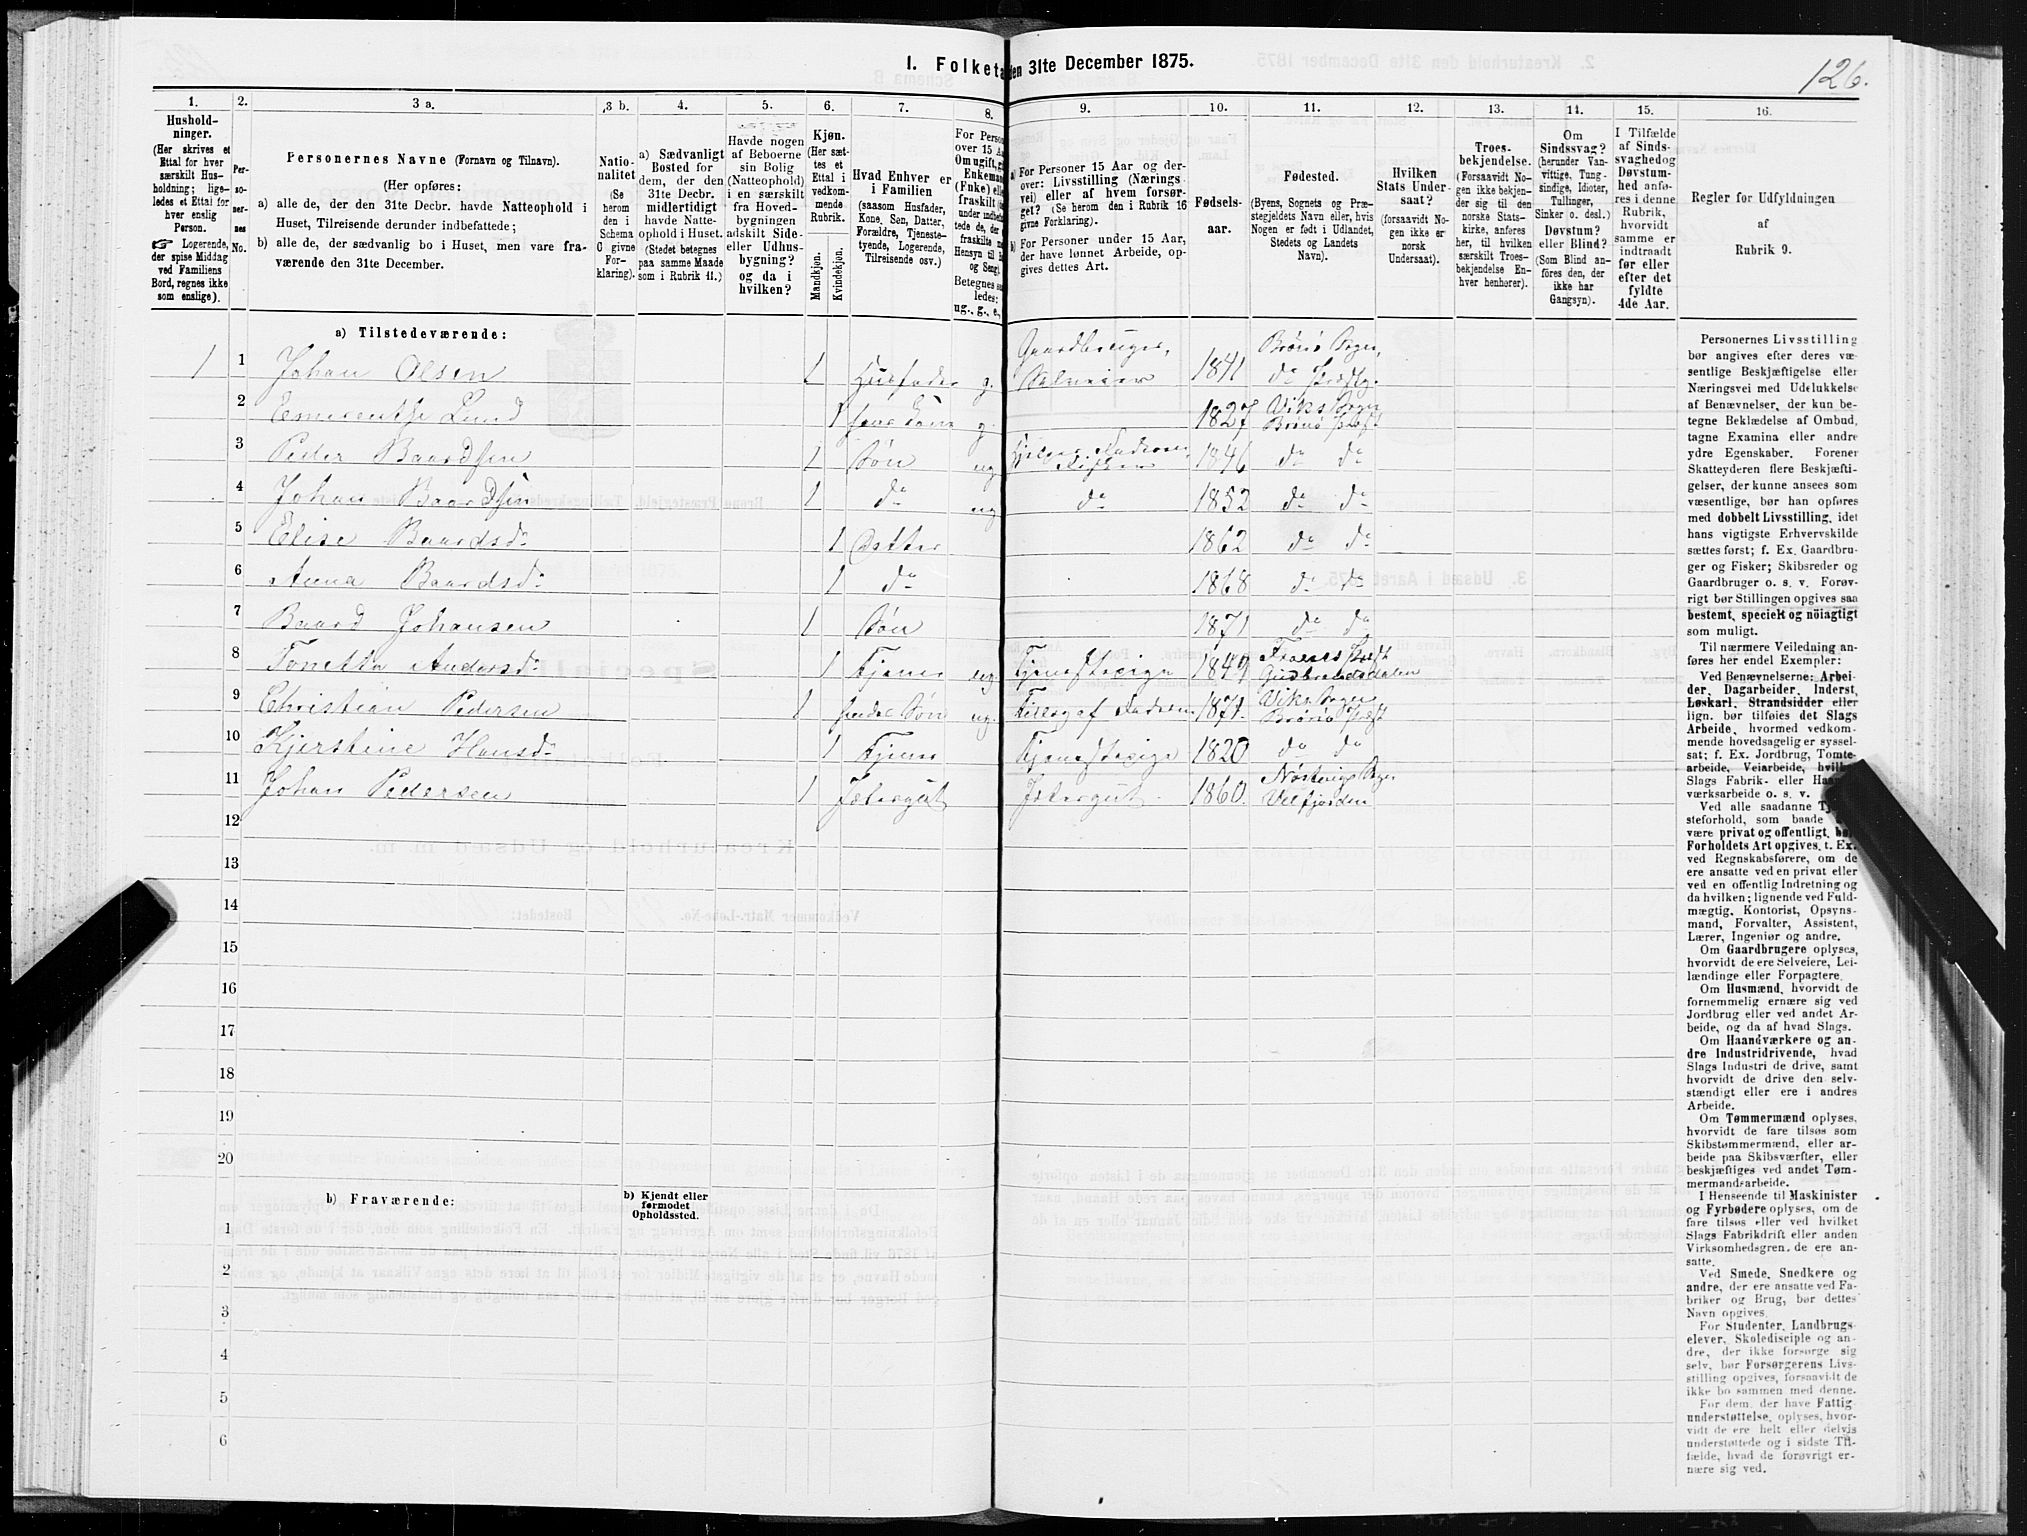 126.
I. Folketæ
den 31te December 1875.
1.
2.
3 a.
3 b.
4.
5.
6.
7.
8.
9.
10.
11.
12.
13.
14.
15.
16.
Hushold-
ninger.
(Her skrives et
Ettal for hver
særskilt Hus-
holdning; lige-
ledes et Ettal for
hver enslig
Person.
☞ Logerende,
der spise Middag
ved Familiens
Bord, regnes ikke
som enslige).
Per-
so-
ner-
nes
No.
Personernes Navne (Fornavn og Tilnavn).
(Her opføres:
a) alle de, der den 31te Decbr. havde Natteophold i
Huset, Tilreisende derunder indbefattede;
b) alle de, der sædvanlig bo i Huset, men vare fra-
værende den 31te December.
Natio-
nalitet
(Se
herom
den i
Schema
C givne
For-
klaring).
a) Sædvanligt
Bosted for
dem, der den
31te Decbr.
midlertidigt
havde Natte-
ophold i Huset.
(Stedet betegnes
paa samme Maade
som i Rubrik 11.)
Havde nogen
af Beboerne
sin Bolig
(Natteophold)
i en særskilt
fra Hoved-
bygningen
adskilt Side-
eller Udhus-
bygning?
og da i
hvilken?
Kjøn.
(Her sæt-
tes et
Ettal i
vedkom-
mende
Rubrik.
Mandkjøn.
Kvindekjøn.
Hvad Enhver er
i Familien
(saasom Husfader,
Kone, Søn, Datter,
Forældre, Tjeneste-
tyende, Logerende,
Tilreisende osv.)
For Person
over 15 Aa
Om ugift, gi
Enkeman
(Enke) elle
fraskilt
under indbefa
tede de, der e
fraskilte
Hensyn til B
og Seng).
Betegnes saa
ledes:
ug., g., e.,
a) For Personer 15 Aar og der-
over: Livsstilling (Nærings-
vei) eller af hvem forsør-
get? (Se herom den i Rubrik 16
givne Forklaring).
b) For Personer under 15 Aar,
der have lønnet Arbeide, op-
gives dettes Art.
Fødsels-
aar.
Fødested.
(Byens, Sognets og Præ-
stegjeldets Navn eller, hvis
Nogen er født i Udlandet,
Stedets og Landets
Navn).
Hvilken
Stats Under-
saat?
(forsaavidt No-
gen ikke er
norsk
Undersaat).
Troes-
bekjendelse.
(Forsaavidt No-
gen ikke bekjen-
der sig til den
norske Stats-
kirke, anføres
her, til hvilken
særskilt Troes-
bekjendelse En-
hver henhører).
Om
Sindssvag?
(herunder Van-
vittige, Tung-
sindige, Idioter,
Tullinger,
Sinker o. desl.)
Døvstum?
eller Blind?
(Som Blind an-
føres den, der
ikke har
Gangsyn).
I Tilfælde
af Sinds-
svaghedog
Døvstum-
hed anfø-
res i denne
Rubrik,
hvorvidt
samme er
indtraadt
før eller
efter det
fyldte
4de Aar.
Regler for Udfyldningen
af
Rubrik 9.
a) Tilstedeværende:
1 1 Johan Olsen 1 Husfader g. Gaardbruger, Selveier 1841 Brønø Sogn, do Præstg.
2 Esmerentse Lund 1 hans Kone g. 1827 Viks Sogn Brønø Præst
3 Peder Baardsen 1 Søn ug 1846 do do
4 Johan Baardsen 1 do ug do 1852 do do
5 Elise Baardsdr 1 Datter 1862 do do
6 Anna Baardsdr 1 do 1868 do do
7 Baard Johansen 1 Søn 1871 do do
8 Tonetta Andersdr 1 Tjener ug. Tjenestepige 1849 Gudbrandsdalen
9 Christian Pedersen 1 Søn ug. 1871. Viks Sogn Brønø Præst
10 Kjerstine Hansdr 1 Tjener Tjenestepige 1820 do do
11 Johan Pedersen 1 Jætergut Jætergut. 1860. Velfjorden
12
13
14
15
16
17
18
19
20
b) Fraværende:
b) Kjendt eller
formodet
Opholdssted.
1
2
3
4
5
6
Personernes Livsstilling
bør angives efter deres væ-
sentlige Beskjæftigelse eller
Næringsvei med Udelukkelse
af Benævnelser, der kun be-
tegne Beklædelse af Ombud,
tagne Examina eller andre
ydre Egenskaber. Forener
Skatteyderen flere Beskjæfti-
gelser, der kunne ansees som
væsentlige, bør han opføres
med dobbelt Livsstilling, idet
hans vigtigste Erhvervskilde
sættes først; f. Ex. Gaardbru-
ger og Fisker; Skibsreder og
Gaardbruger o. s. v. Forøv-
rigt bør Stillingen opgives saa
bestemt, specielt og nöiagtigt
som muligt.
Til nærmere Veiledning an-
føres her endel Exempler:
Ved Benævnelserne: Arbei-
der, Dagarbeider, Inderst,
Løskarl, Strandsidder eller
lign. bør tilføies det Slags
Arbeide, hvormed vedkom-
mende hovedsagelig er syssel-
sat; f. Ex. Jordbrug, Tomte-
arbeide, Veiarbeide, hvilke
Slags Fabrik- eller Haand-
værksarbeide o. s. v.
Ved alle saadanne Tje-
steforhold, som baade
være privat og offentligt, bør
Forholdets Art opgives, t. Ex.
ved Regnskabsførere, om de
ere ansatte ved en privat eller
ved en offentlig Indretning og
da hvilken; lignende ved Fuld-
mægtig, Kontorist, Opsyns-
mand, Forvalter, Assistent,
Lærer, Ingeniør og andre.
Om Gaardbrugere oplyses,
hvorvidt de ere Selveiere, Lei-
lændinge eller Forpagtere.
Om Husmænd, hvorvidt de
fornemmelig ernære sig ved
Jordbrug eller ved andet Ar-
beide, og da af hvad Slags.
Om Haandværkere og an-
dre Industridrivende, hvad
Slags Industri de drive, samt
hvorvidt de drive den selv-
stændigt eller ere i andres
Arbeide.
Om Tømmermænd oplyses,
hvorvidt de fare tilsøs som
Skibstømmermænd, eller ar-
beide paa Skibsværfter, eller
beskjæftiges ved andet Tøm-
mermandsarbeide.
I Henseende til Maskinister
og Fyrbødere oplyses, om de
fare tilsøs eller ved hvilket
Slags Fabrikdrift eller anden
Virksomhedsgren, de ere an-
satte.
Ved Smede, Snedkere og
andre, der ere ansatte ved Fa-
briker og Brug, bør dettes
Navn opgives.
For Studenter, Landbrugs-
elever, Skoledisciple og an-
dre, der ikke forsørge sig
selv, bør Forsørgerens Livs-
stilling opgives, forsaavidt de
ikke bo sammen med denne.
For dem, der have Fattig-
understøttelse, oplyses, hvor-
vidt de ere helt eller delvis
understøttede og i sidste Til-
fælde, hvad de forøvrigt er-
nære sig ved.